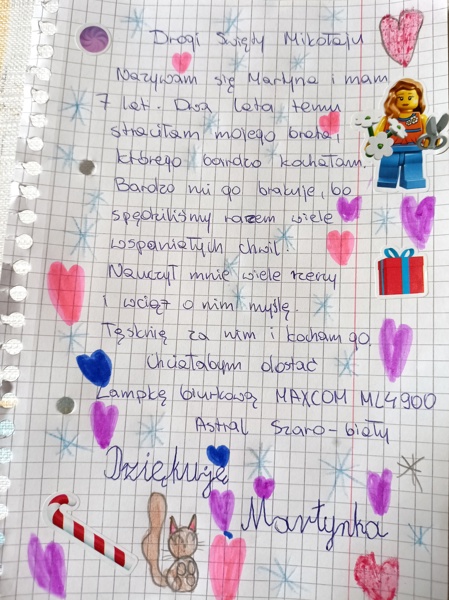 Drogi Święty Mikołaju
Nazywam się Martyna i mam
7 lat. Dwa lata temu
straciłam mojego brata,
którego bardzo kochałam.
Bardzo mi go brakuje, bo
spędziliśmy razem wiele
wspaniałych chwil.
Nauczył mnie wiele rzeczy
i wciąż o nim myślę.
Tęsknię za nim i kocham go.
Chciałabym dostać
Lampkę biurkową MAXCOM ML4900
Astral Szaro-biały
Dziękuję
Martynka